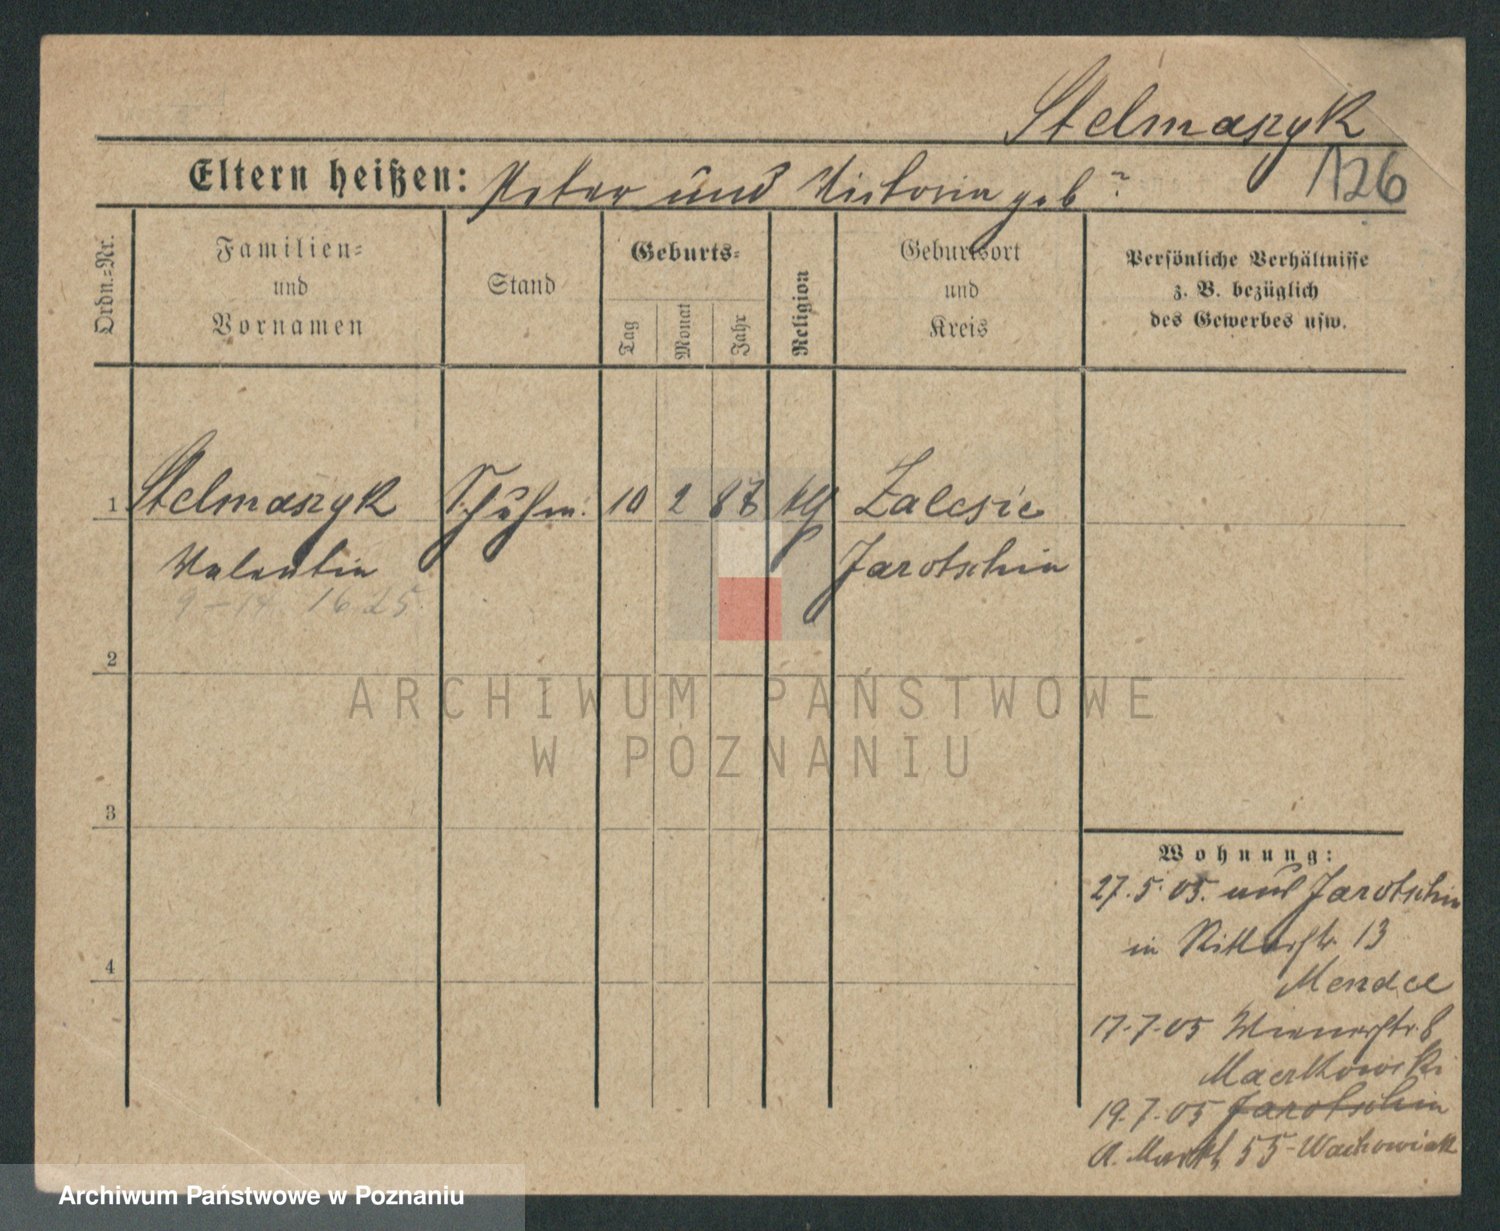 Stelmaszyk
126
Eltern heißen: Peter und Victoria geb ?
Ordn.=Nr.
Familien=
und
Vornamen
Stand
Geburts=
Tag
Monat
Jahr
Religion
Geburtsort
und
Kreis
Persönliche Verhältnisse
z. B. bezüglich
des Gewerbes usw.
1 Stelmaszyk Schuhm. 10 2 87 kth Zalesie
Valentin Jarotschin
2
3
4
Wohnung:
27.5.05. aus Jarotschin
in Ritterstr. 13
Mendel
17.7.05 Wienerstr. 8
Maćkowski
19.7.05 Jarotschin
A. Markt 55 Wachowiak
ARCHIWUM PAŃSTWOWE
W POZNANIU
Archiwum Państwowe w Poznaniu